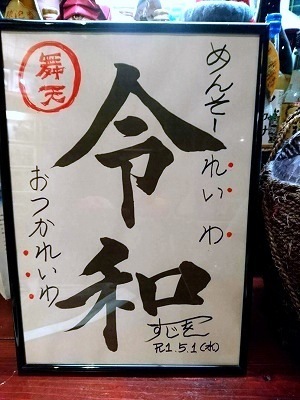 めんそーれいわ
令和
舞天
おつかれいわ
R1.5.1(水)